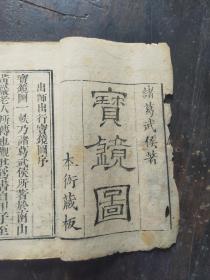 諸葛武侯著
寶鏡圖
本衙藏板
出師出行寶鏡圖序
寶鏡圖一帙乃諸葛武侯所著於南山